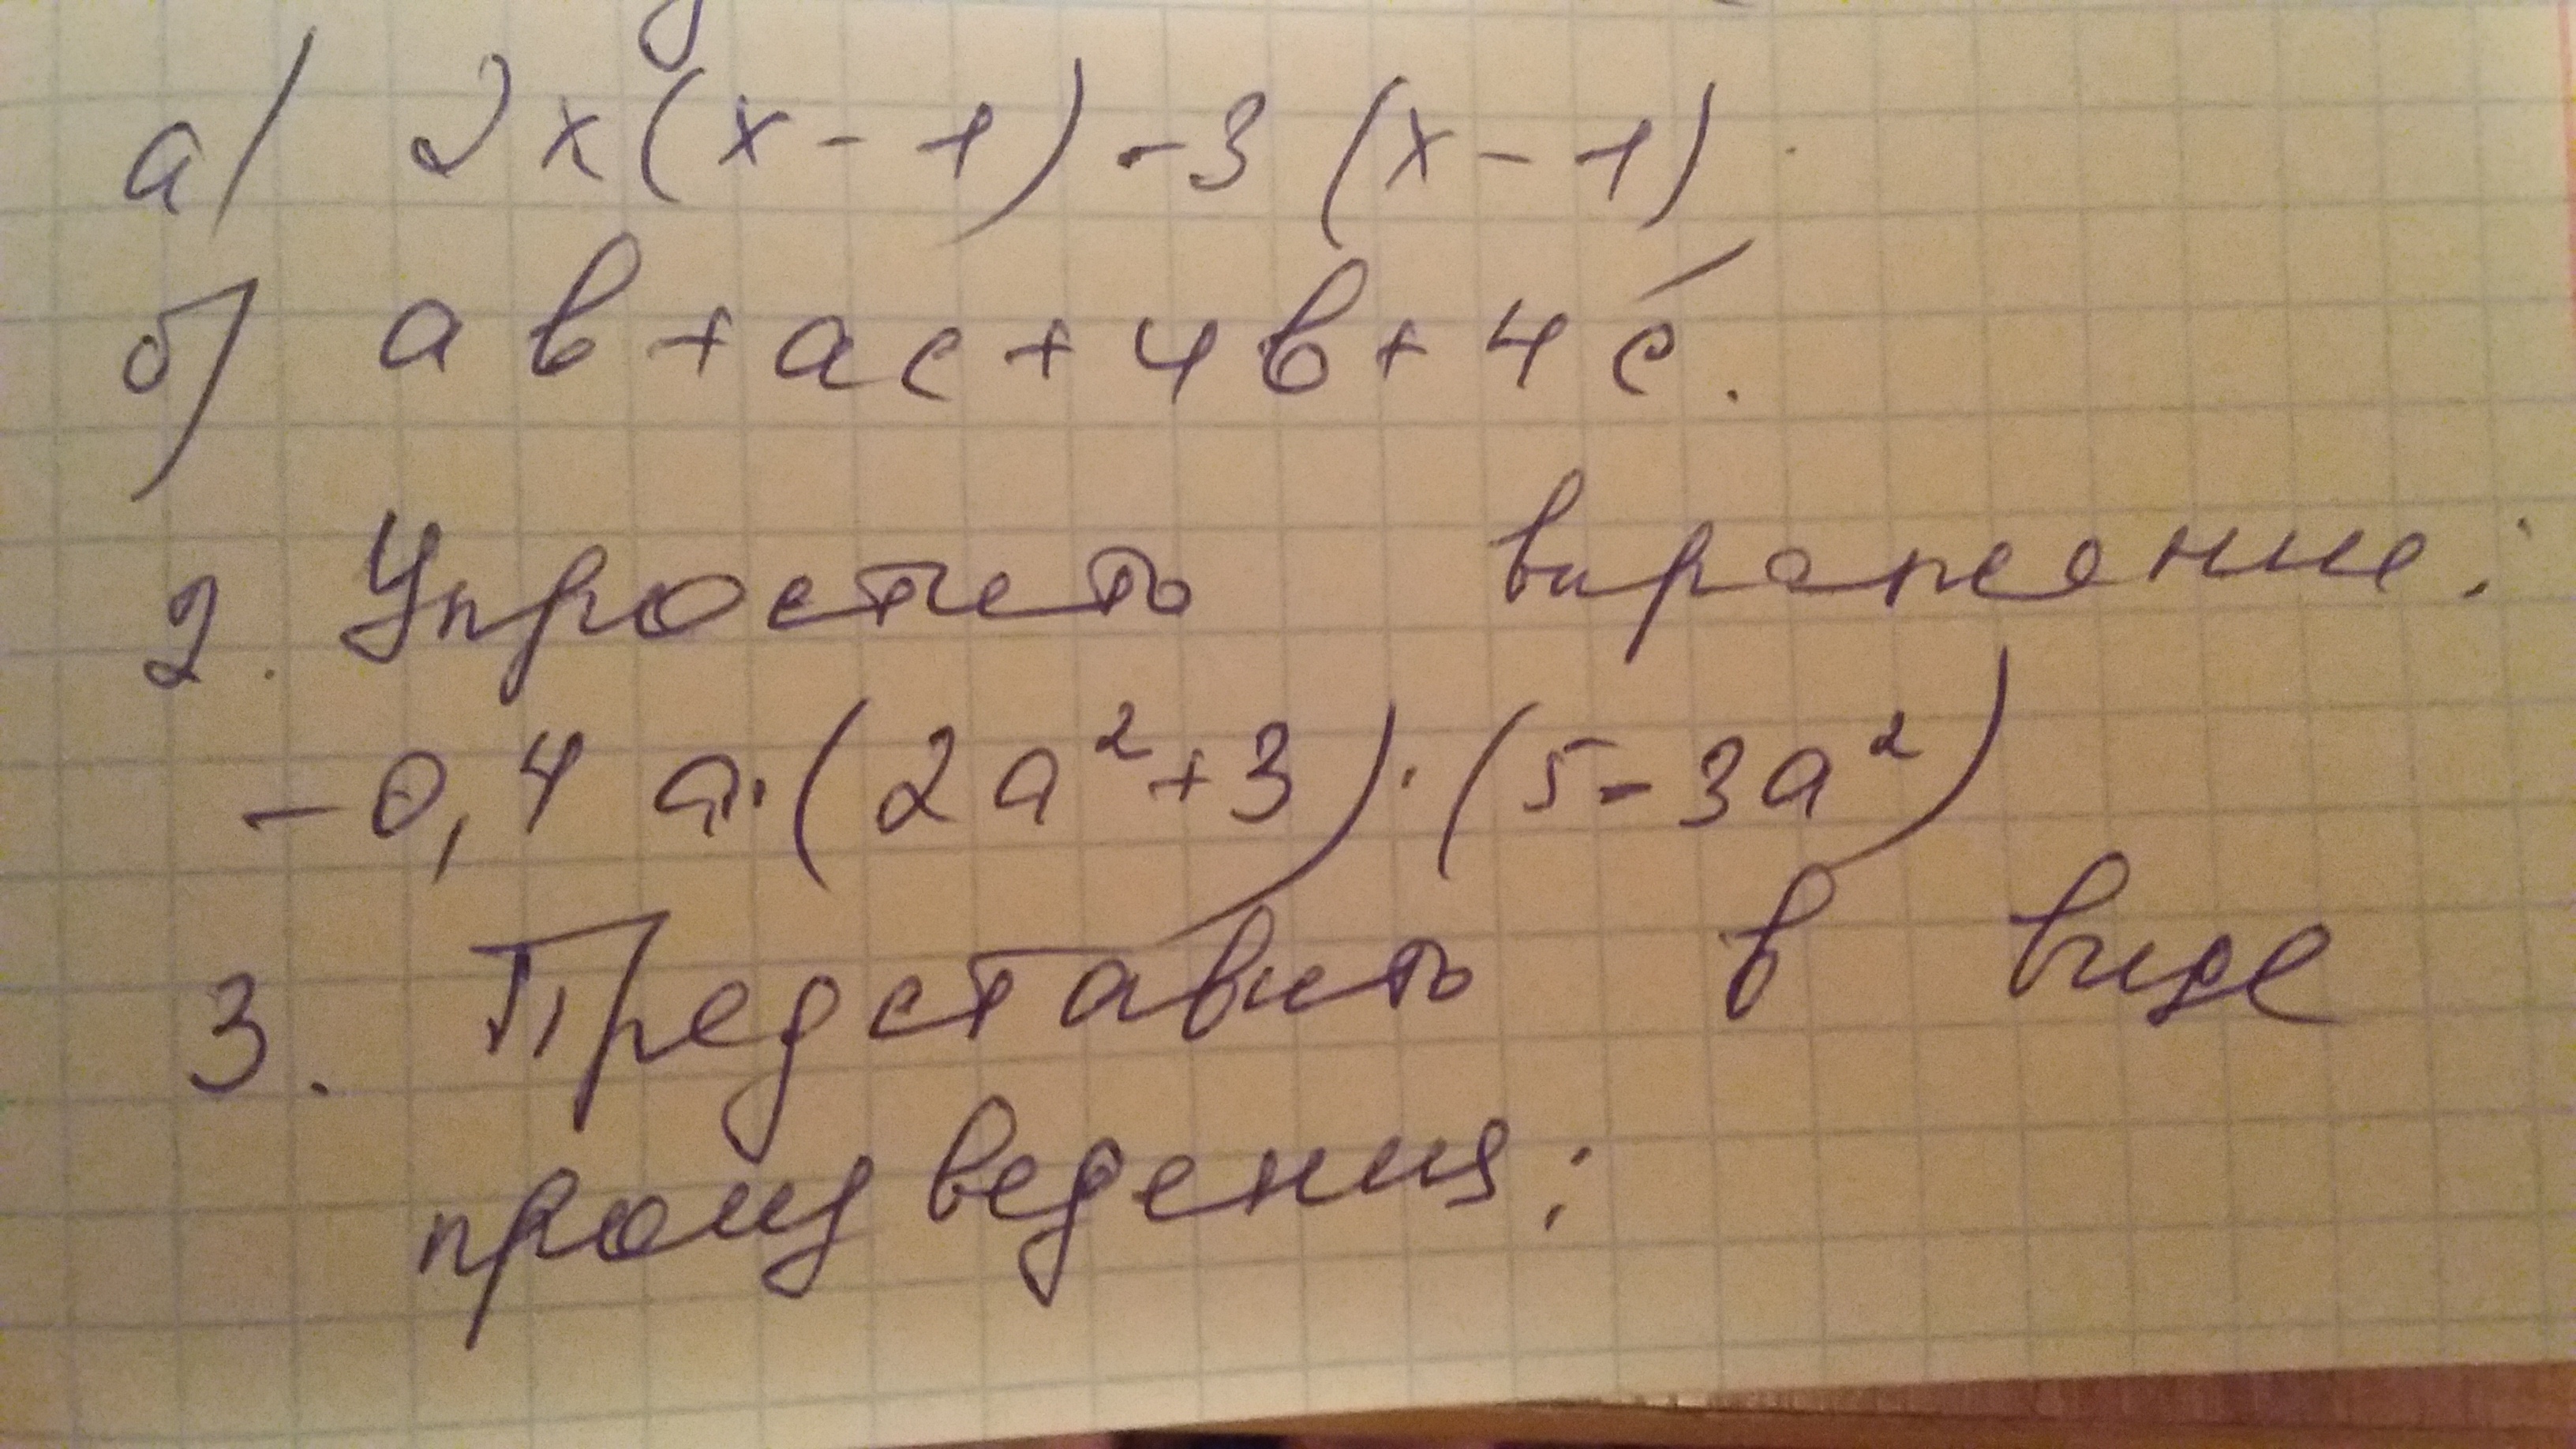 а) 2x(x-1)-3(x-1).
б) ав+ас+4в+4с.
2. Упростить выражение:
-0,4 а·(2а²+3)·(5-3а²)
3. Представить в виде
произведения: